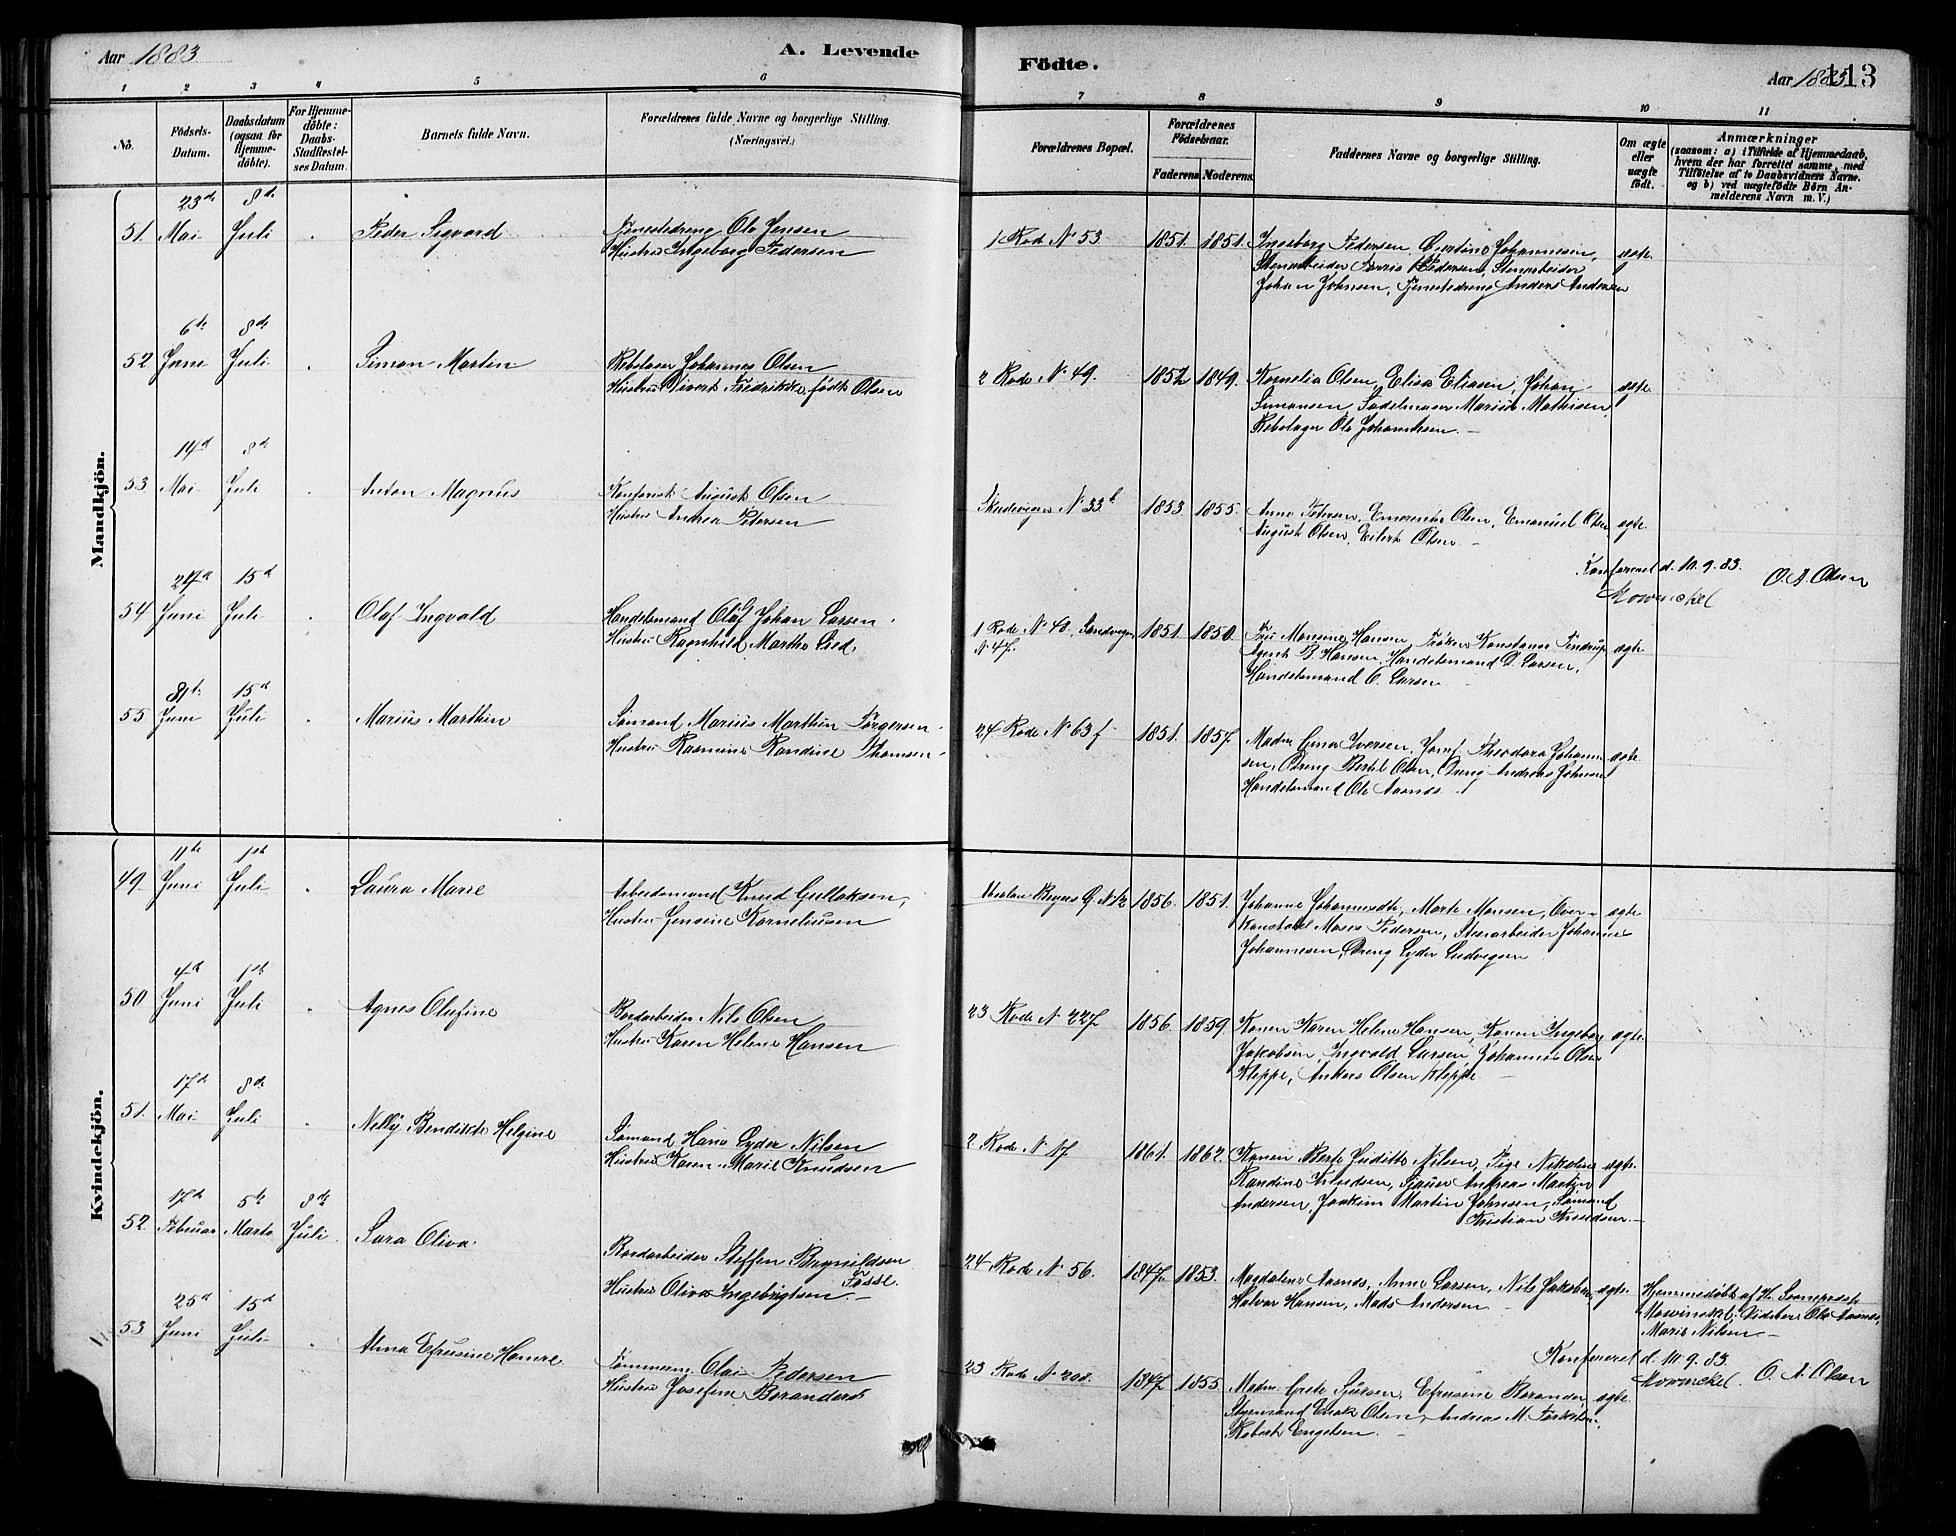 Aar 1883
A. Levende
Födte.
Aar 1883
113
1 2 3 4 5 6 7 8 9 10 11
No.
Födsels-Datum.
Daabsdatum (ogsaa for Hjemme-döbte).
For Hjemme-döbte: Daabs-Stadfæstel-ses Datum.
Barnets fulde Navn.
Forældrenes fulde Navne og borgerlige Stilling.
(Næringsvei.)
Forældrenes Bopæl.
Forældrenes Födselsaar.
Faderens Moderens.
Faddernes Navne og borgerlige Stilling.
Om ægte eller uægte födt.
Anmærkninger
(saasom: a) i Tilfælde af Hjemmedaab, hvem der har forrettet samme, med Tilföielse af to Daabsvidners Navne. og b) ved uægtefödte Börn An-melderens Navn m. V.)
Mandkjön.
51. 23de Mai 8de Juli Peder Sigvard
Tjenestedreng Ole Jensen
Hustru Ingeborg Pedersen
1 Rode N 53. 1851. 1851.
Ingeborg Pedersen, Bertine Johannesen,
Stenarbeider Pedersen, Stenarbeider
Johan Johnsen, Tjenestedreng Anders Andersen
ægte.
52 6te Juni 8de Juli Simon Martin
Rebslager Johannes Olsen
Hustru Sivert Fredrikke, født Olsen
2 Rode N 49. 1852 1849.
Kornelia Olsen, Elisa Eliasen, Johan
Simonsen, Sadelmager Marius Mathisen
Rebslager Ole Johannesen. —
ægte.
53 14d Mai 8d Juli Anton Magnus
Kontorist August Olsen
Hustru Andrea Petersen
Skudevigen N 33b 1853 1855.
Anne Petersen, Emerentse Olsen, Emanuel Olsen
August Olsen, Eilert Olsen —
ægte.
Konfereret d. 10.9.83. O. A. Olsen
Mowinckel
54 Juni 15d Juli Olaf Ingvald
Handelsmand Olaf Johan Larsen
Hustru Ragnhild Marthe Lied
1 Rode N 40, Sandvigen
N 47. 1851. 1850.
Fru Monsine Hansen, Frøken Konstanse
Agent B. Hansen, Handelsmand D. Larsen,
Handelsmand O. Larsen
ægte
55 Juni 15d Juli Marius Marthin
Sømand Marius Marthin Torgersen
Hustru Rasmine Randine Thomsen
24 Rode N 63 f 1851. 1857.
Madm Gina Iversen, Jomf Theodora Johanne-
sen, Dreng Bertel Olsen, Dreng Andreas Johnsen
Handelsmand Ole Aasnes
ægte.
Kvindekjön.
49. 11te Juni 1ste Juli Laura Marie
Arbeidsmand Knud Gullaksen,
Hustru Jensine Korneliusen
1856. 1851.
Johanne Johannesdtr, Marte Monsen, Over-
konstabel Moses Pedersen, Stenarbeider Johannes
Johannesen, Dreng Lyder Ludvigsen
ægte
50 4de Juni 1ste Juli Agnes Olufine
Bordarbeider Nils Olsen
Hustru Karen Helene Hansen
23 Rode N 227 1856. 1859.
Konen Karen Helene Hansen, Konen Ingeborg
Jakobsen, Ingvald Larsen, Johannes Olsen
Kleppe, Ankers Olsen Kleppe —
ægte.
51. 17de Mai 8de Juli Nelly Bendikte Helgine
Sømand Hans Lyder Nilsen
Hustru Karen Marie Knudsen
2 Rode N 17 1861. 1862.
Konen Berte Juditte Nilsen, Pige Nikoline
Randine Knudsen, Andreas Martin
Andersen, Joakim Martin Johnsen, Sømand
Kristian Knudsen —
ægte.
52. 17de Februar 5te Marts 8de Juli Sara Oliva
Bordarbeider Steffen Brynildsen
Fosse.
Hustru Oliva Ingebrigtsen —
24 Rode N 56. 1847. 1853.
Magdalene Aasnes, Anne Larsen, Nils Jakobsen,
Halvor Hansen, Mads Andersen
ægte.
Hjemmedøbt af Hr Sogneprest
Mowinckel, Vidsbere Ole Aasnes,
Marie Nilsen —
53 25d Juni 15d Juli Anna Efrusine Homre
Tømmerm. Olai Pedersen
Hustru Josefine Berander
23 Rode N 208. 1847 1855.
Madm. Grete Efrusine Berander,
Styrmand Olsen, Andreas M.
Robert Engelsen.
ægte.
Konfereret d. 10.9.83.
Mowinckel. O. A. Olsen